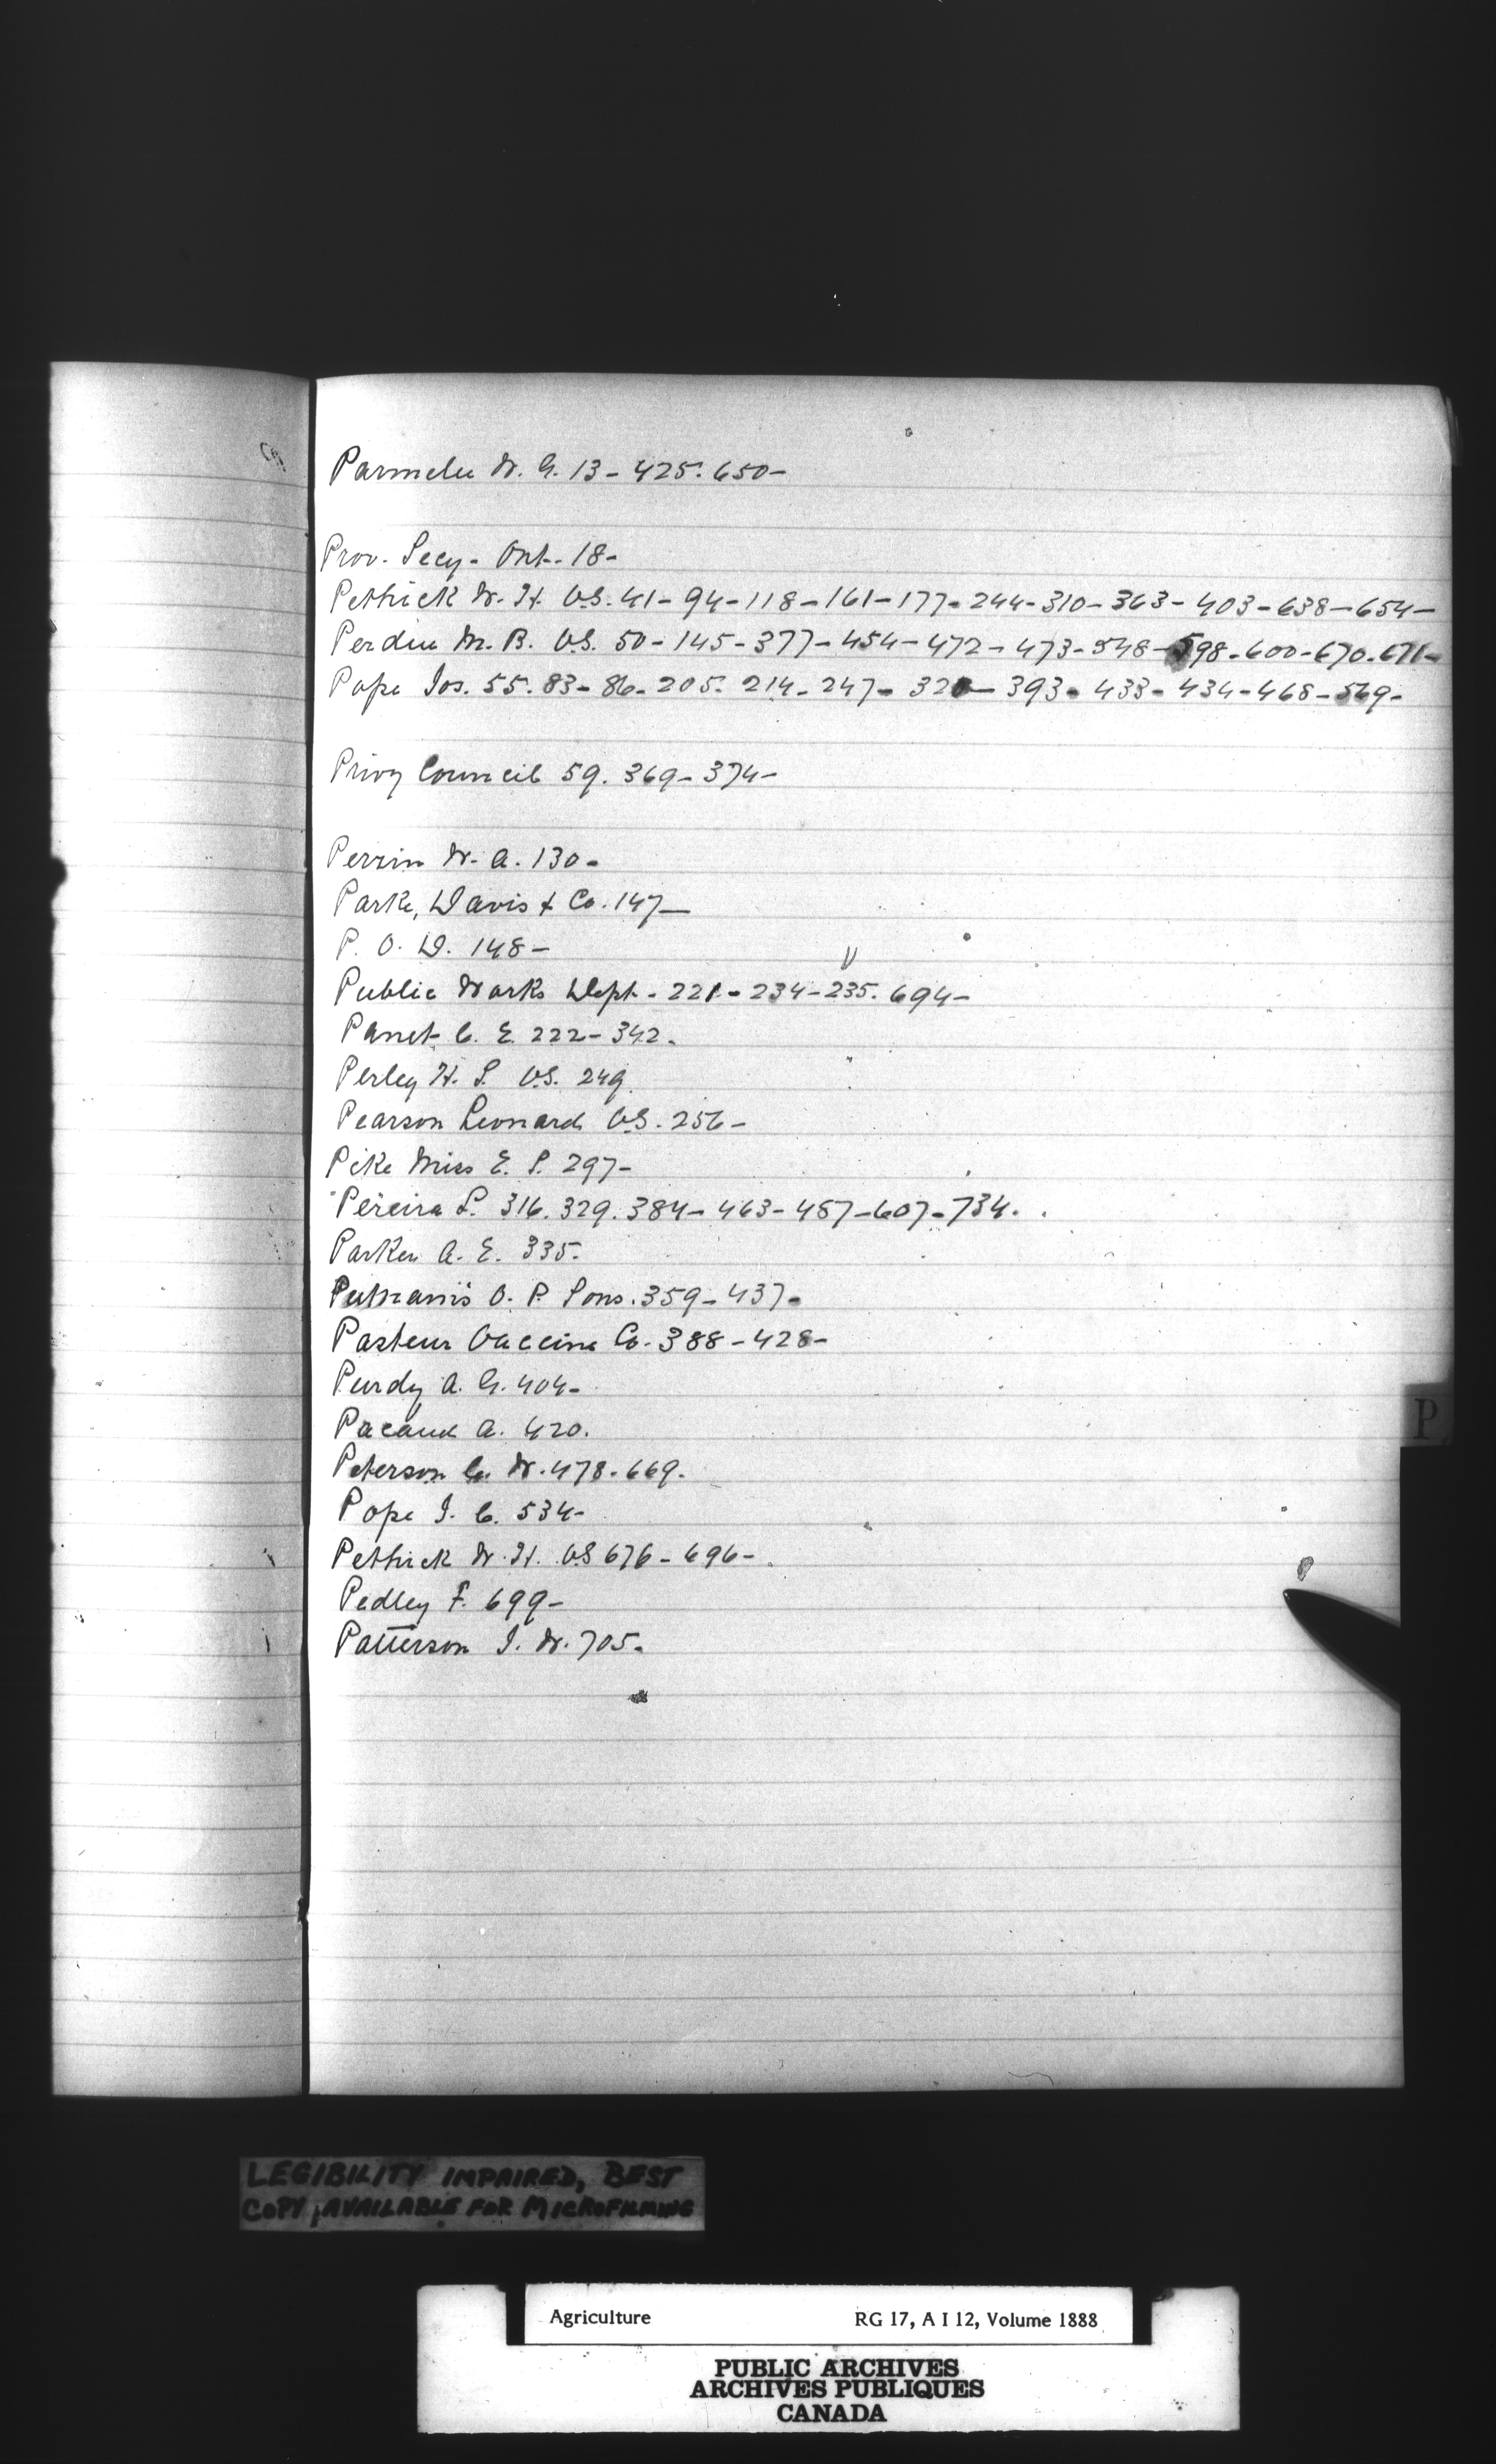 Parmelee W. G. 13 - 425. 650 -
Prov. Secy - Ont. 18 -
Pethick W. H. V.S. 41 - 94 - 118 - 161 - 177 - 244 - 310 - 363 - 403 - 638 - 654 -
Perdue M. B. V.S. 50 - 145 - 377 - 454 - 472 - 473 - 548 - 598 - 600 - 670 - 671 -
Pope Jos. 55. 83 - 86 - 205. 214 - 247 - 320 - 393 - 433 - 434 - 468 - 569 -
Privy Council 59. 369 - 374 -
Perrin W. A. 130 -
Parke, Davis & Co. 147 -
P. O. D. 148 -
Public Works Dept - 221 - 234 - 235. 694 -
Panet C. E. 222 - 342.
Perley H. S. V.S. 249
Pearson Leonard V.S. 256 -
Pike Miss E. S. 297 -
Pereira L. 316. 329. 384 - 463 - 487 - 607 - 734.
Parker A. E. 335.
Putnam's G. P. Sons. 359 - 437 -
Pasteur Vaccine Co. 388 - 428 -
Purdy A. G. 404 -
Pacaud A. 420.
Peterson C. W. 478 - 669.
Pope J. C. 534 -
Pethick W. H. V.S 676 - 696 -
Pedley F. 699 -
Patterson J. W. 705.
P
LEGIBILITY IMPAIRED, BEST
COPY AVAILABLE FOR MICROFILMING
Agriculture RG 17, A I 12, Volume 1888
PUBLIC ARCHIVES
ARCHIVES PUBLIQUES
CANADA